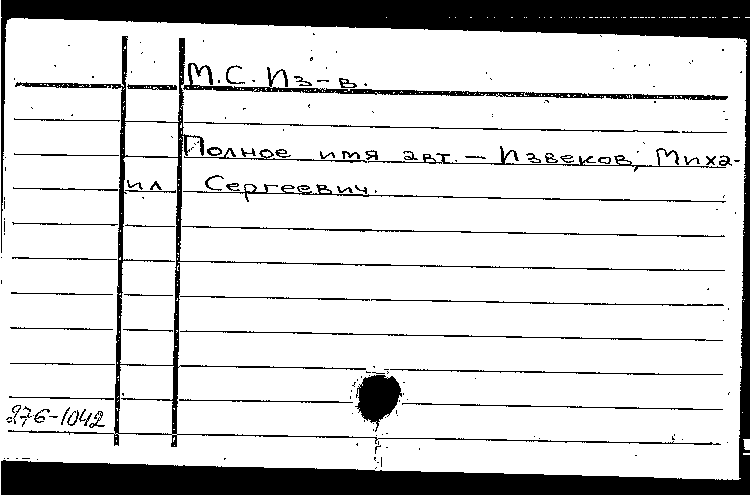 М.С. Из-в.
Полное имя авт. — Извеков, Миха-
ил Сергеевич.
276-1042